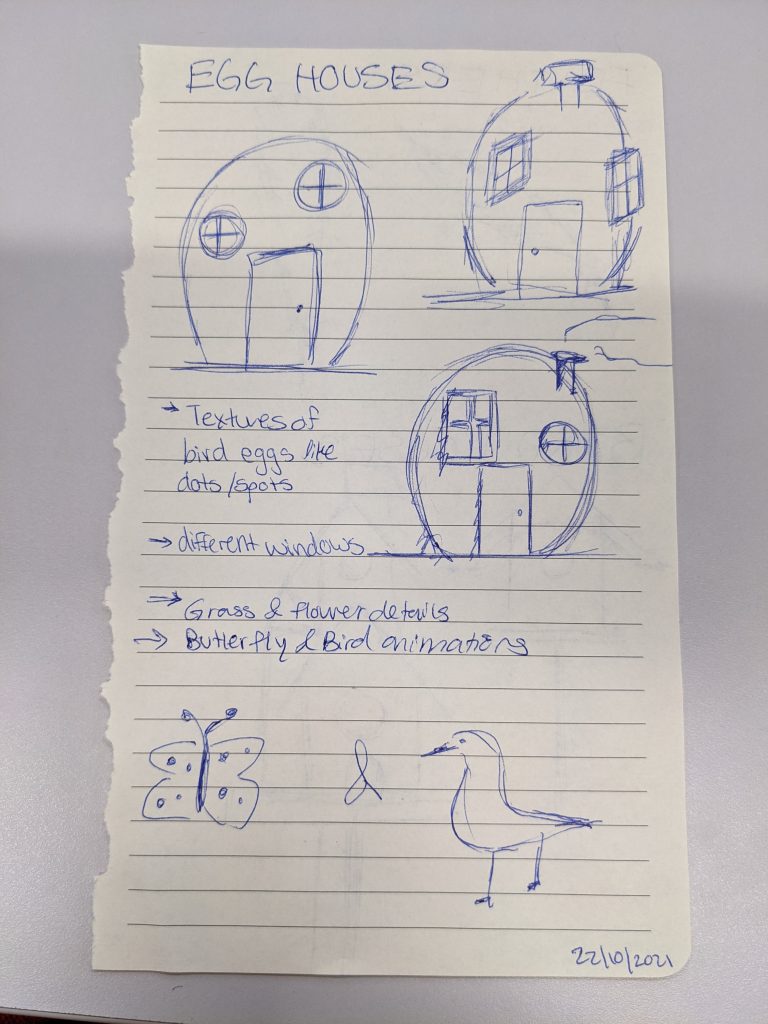 EGG HOUSES
→ Textures of
bird eggs like
dots/spots
→ different windows
→ Grass & flower details
→ Butterfly & Bird animations
&
22/10/2021